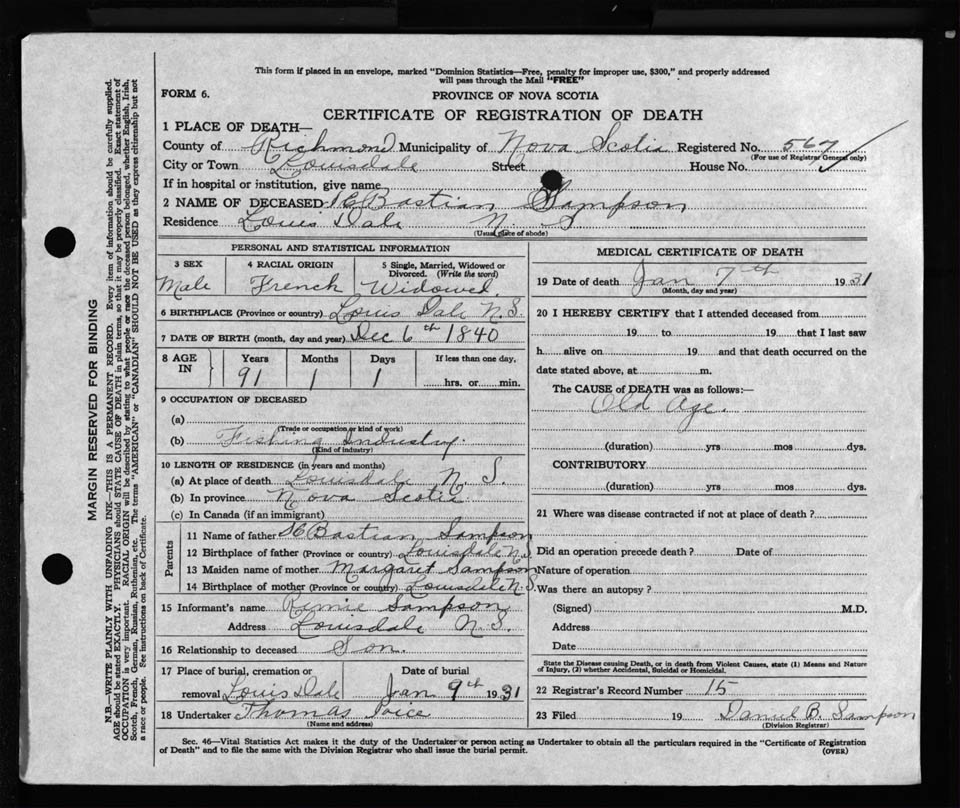 This form if placed in an envelope, marked "Dominion Statistics—Free, penalty for improper use, $300," and properly addressed
will pass through the Mail "FREE"
FORM 6.
PROVINCE OF NOVA SCOTIA
CERTIFICATE OF REGISTRATION OF DEATH
1 PLACE OF DEATH—
County of Richmond Municipality of Nova Scotia Registered No. 567
(For use of Registrar General only)
City or Town Louisdale Street House No.
If in hospital or institution, give name
2 NAME OF DECEASED Bastian Sampson
Residence Louis Dale N. S
(Usual place of abode)
PERSONAL AND STATISTICAL INFORMATION
3 SEX 4 RACIAL ORIGIN 5 Single, Married, Widowed or
Divorced. (Write the word)
Male French Widowed
6 BIRTHPLACE (Province or country) Louis Dale N.S.
7 DATE OF BIRTH (month, day and year) Dec 6th 1840
8 AGE IN Years Months Days If less than one day,
91 1 1 hrs. or min.
9 OCCUPATION OF DECEASED
(a)
(Trade or occupation or kind of work)
(b) Fishing Industry.
(Kind of industry)
10 LENGTH OF RESIDENCE (in years and months)
(a) At place of death Louisdale N. S.
(b) In province Nova Scotia
(c) In Canada (if an immigrant)
Parents
11 Name of father Bastian Sampson
12 Birthplace of father (Province or country) Louisdale N.S.
13 Maiden name of mother Margaret Sampson
14 Birthplace of mother (Province or country) Louisdale N.S.
15 Informant's name Sampson
Address Louisdale N.S.
16 Relationship to deceased Son.
17 Place of burial, cremation or Date of burial
removal Louis Dale Jan 9th 1931
18 Undertaker Thomas
(Name and address)
MEDICAL CERTIFICATE OF DEATH
19 Date of death Jan 7th 1931
(Month, day and year)
20 I HEREBY CERTIFY that I attended deceased from
19 to 19 that I last saw
h alive on 19 and that death occurred on the
date stated above, at m.
The CAUSE of DEATH was as follows:—
Old Age.
(duration) yrs mos. dys.
CONTRIBUTORY
(duration) yrs mos. dys.
21 Where was disease contracted if not at place of death?
Did an operation precede death? Date of
Nature of operation
Was there an autopsy?
(Signed) M.D.
Address
Date
State the Disease causing Death, or in death from Violent Causes, state (1) Means and Nature
of Injury, (2) whether Accidental, Suicidal or Homicidal.
22 Registrar's Record Number 15
23 Filed 19 Daniel B. Sampson
(Division Registrar)
Sec. 46—Vital Statistics Act makes it the duty of the Undertaker or person acting as Undertaker to obtain all the particulars required in the "Certificate of Registration
of Death" and to file the same with the Division Registrar who shall issue the burial permit. (OVER)
MARGIN RESERVED FOR BINDING
N.B.—WRITE PLAINLY WITH UNFADING INK—THIS IS A PERMANENT RECORD. Every item of information should be carefully supplied.
AGE should be stated EXACTLY. PHYSICIANS should STATE CAUSE OF DEATH in plain terms, so that it may be properly classified. Exact statement of
OCCUPATION is very important. RACIAL ORIGIN will be described by stating to what people or race the deceased person belonged, whether English, Irish,
Scotch, French, German, Russian, Ruthenian, etc. The terms "AMERICAN" or "CANADIAN" SHOULD NOT BE USED as they express citizenship but not
a race or people. See instructions on back of Certificate.